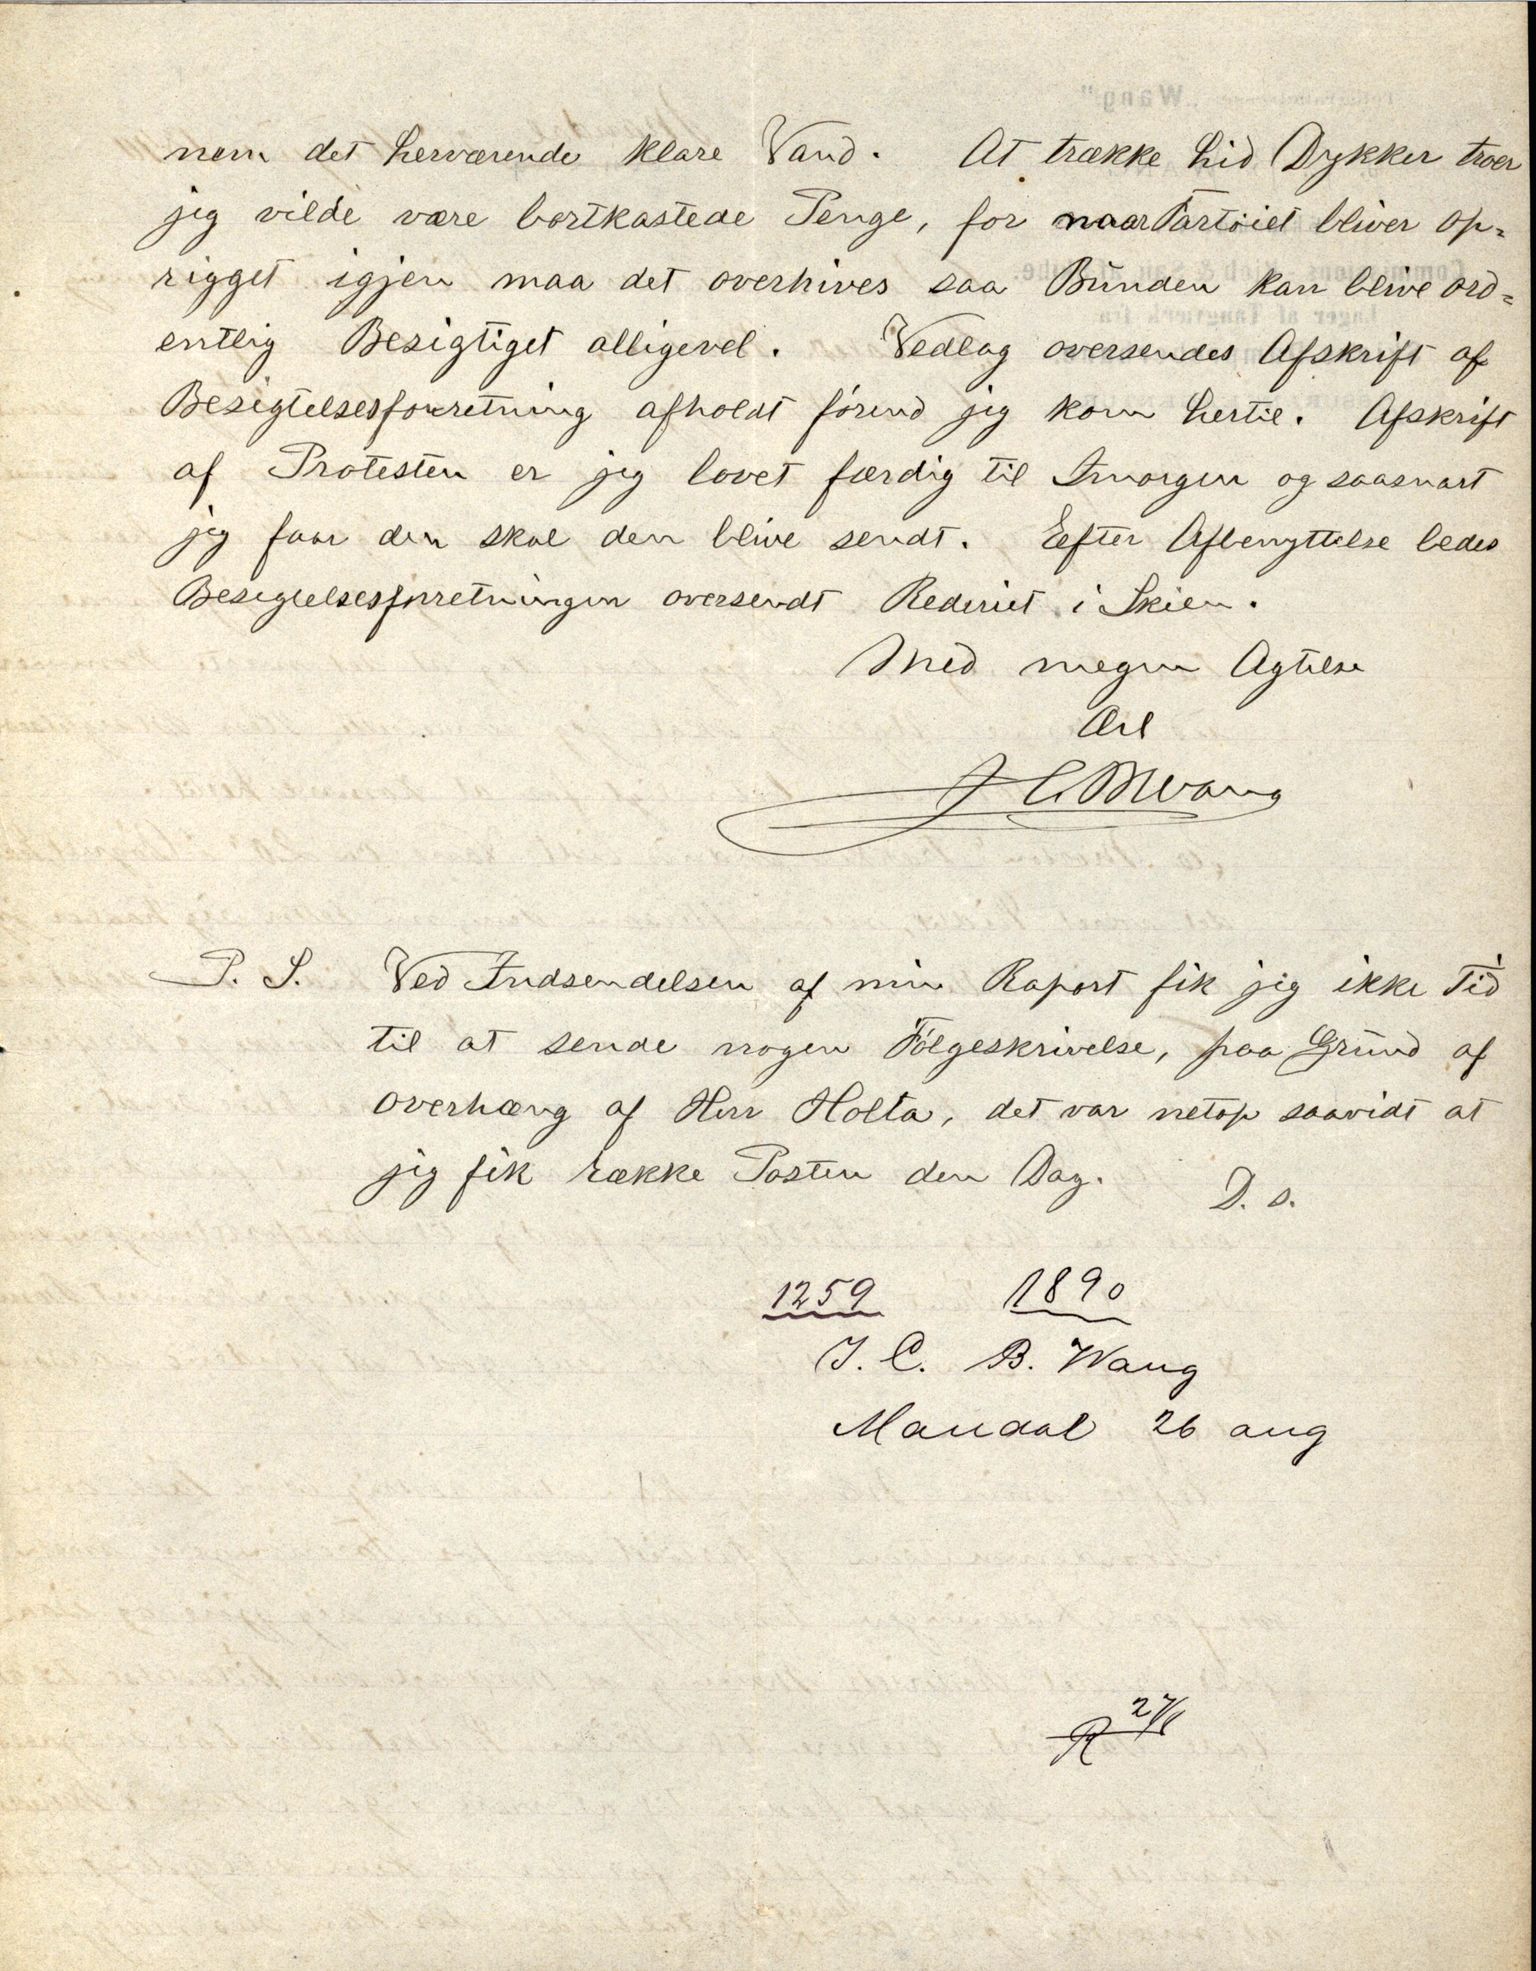 nem det herværende klare Vand. At trække hid Dykker troer
jeg vilde være bortkastede Penge, for naar Fartøiet bliver op=
rigget igjen maa det overhives saa Bunden kan blive ord=
entlig Besigtiget alligevel. Vedlag oversendes Afskrift af
Besigtelsesforretning afholdt førend jeg kom hertil. Afskrift
af Protesten er jeg lovet færdig til Imorgen og saasnart
jeg faar den skal den blive sendt. Eefter Afbenyttelse bedes
Besigtelsesforretningen oversendt Rederiet i Skien.
Med megen Agtelse
Ærb
J C B Wang
P. S. Ved Indsendelsen af min Raport fik jeg ikke Tid
til at sende nogen Følgeskrivelse, paa Grund af
overhæng af Herr Holta, det var netop saavidt at
jeg fik række Posten den Dag. D. s.
1259 1890
J. C. B. Wang
Mandal 26 aug